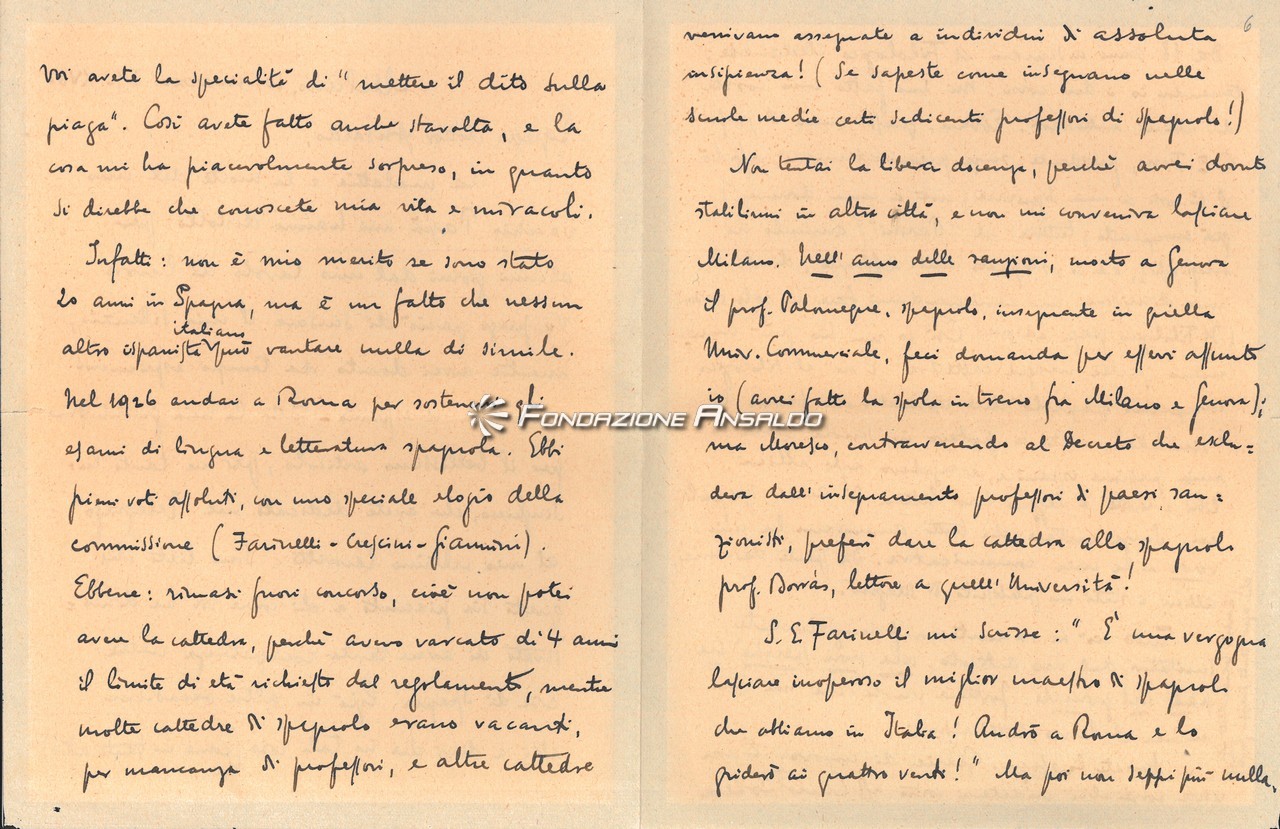 Voi avete la specialità di "mettere il dito sulla
piaga". Così avete fatto anche stavolta, e la
cosa mi ha piacevolmente sorpreso, in quanto
si direbbe che conoscete mia vita e miracoli.
Infatti: non è mio merito se sono stato
20 anni in Spagna, ma è un fatto che nessun
altro ispanista italiano può vantare nulla di simile.
Nel 1926 andai a Roma per sostenere gli
esami di lingua e letteratura spagnola. Ebbi
pieni voti assoluti, con uno speciale elogio della
commissione (Farinelli - Crescini - Giannini).
Ebbene: rimasi fuori concorso, cioè non potei
avere la cattedra, perchè avevo varcato di 4 anni
il limite di età richiesto dal regolamento, mentre
molte cattedre di spagnolo erano vacanti,
per mancanza di professori, e altre cattedre
6
venivano assegnate a individui di assoluta
insipienza! (Se sapeste come insegnano nelle
scuole medie certi sedicenti professori di spagnolo!)
Non tentai la libera docenza, perchè avrei dovuto
stabilirmi in altra città, e non mi conveniva lasciare
Milano. Nell' anno delle sanzioni, morto a Genova
il prof. Palomeque, spagnolo, insegnante in quella
Univ. Commerciale, feci domanda per esservi assunto
io (avrei fatto la spola in treno fra Milano e Genova);
ma Moresco, contravvenendo al Decreto che esclu=
deva dall' insegnamento professori di paesi san=
zionisti, preferì dare la cattedra allo spagnolo
prof. Borrás, lettore a quell' Università!
S. E. Farinelli mi scrisse: "È una vergogna
lasciare inoperoso il miglior maestro di spagnolo
che abbiamo in Italia! Andrò a Roma e lo
griderò ai quattro venti!" Ma poi non seppi più nulla.
FONDAZIONE ANSALDO